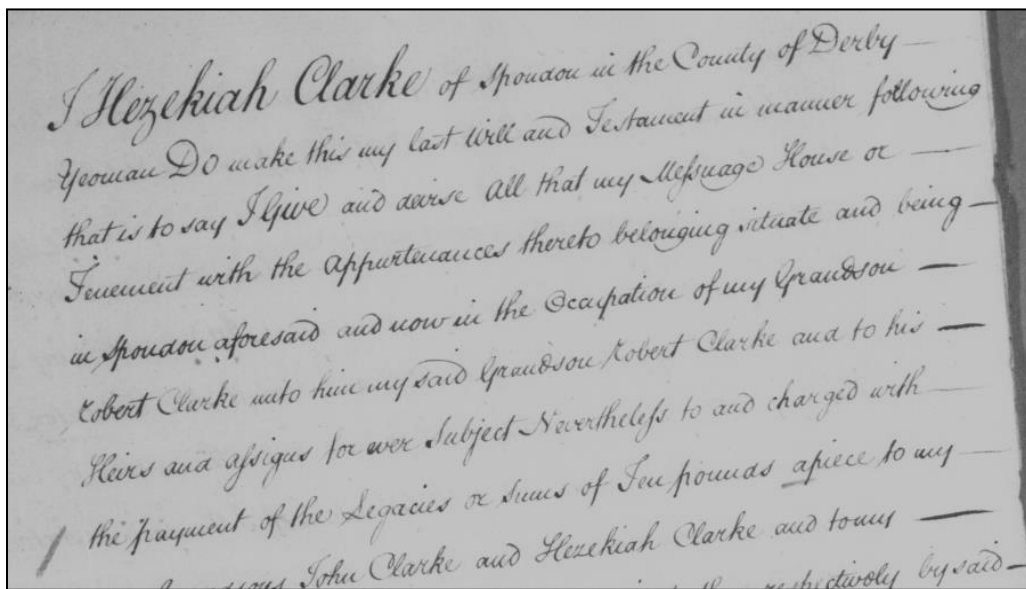 I Hezekiah Clarke of Spondon in the County of Derby —
Yeoman Do make this my last Will and Testament in manner following
that is to say I Give and devise All that my Messuage House or —
Tenement with the Appurtenances thereto belonging situate and being —
in Spondon aforesaid and now in the Occupation of my Grandson —
Robert Clarke unto him my said Grandson Robert Clarke and to his —
Heirs and assigns for ever Subject Nevertheless to and charged with —
the payment of the Legacies or Sums of Ten pounds apiece to my —
John Clarke and Hezekiah Clarke and to my —
respectively by said —